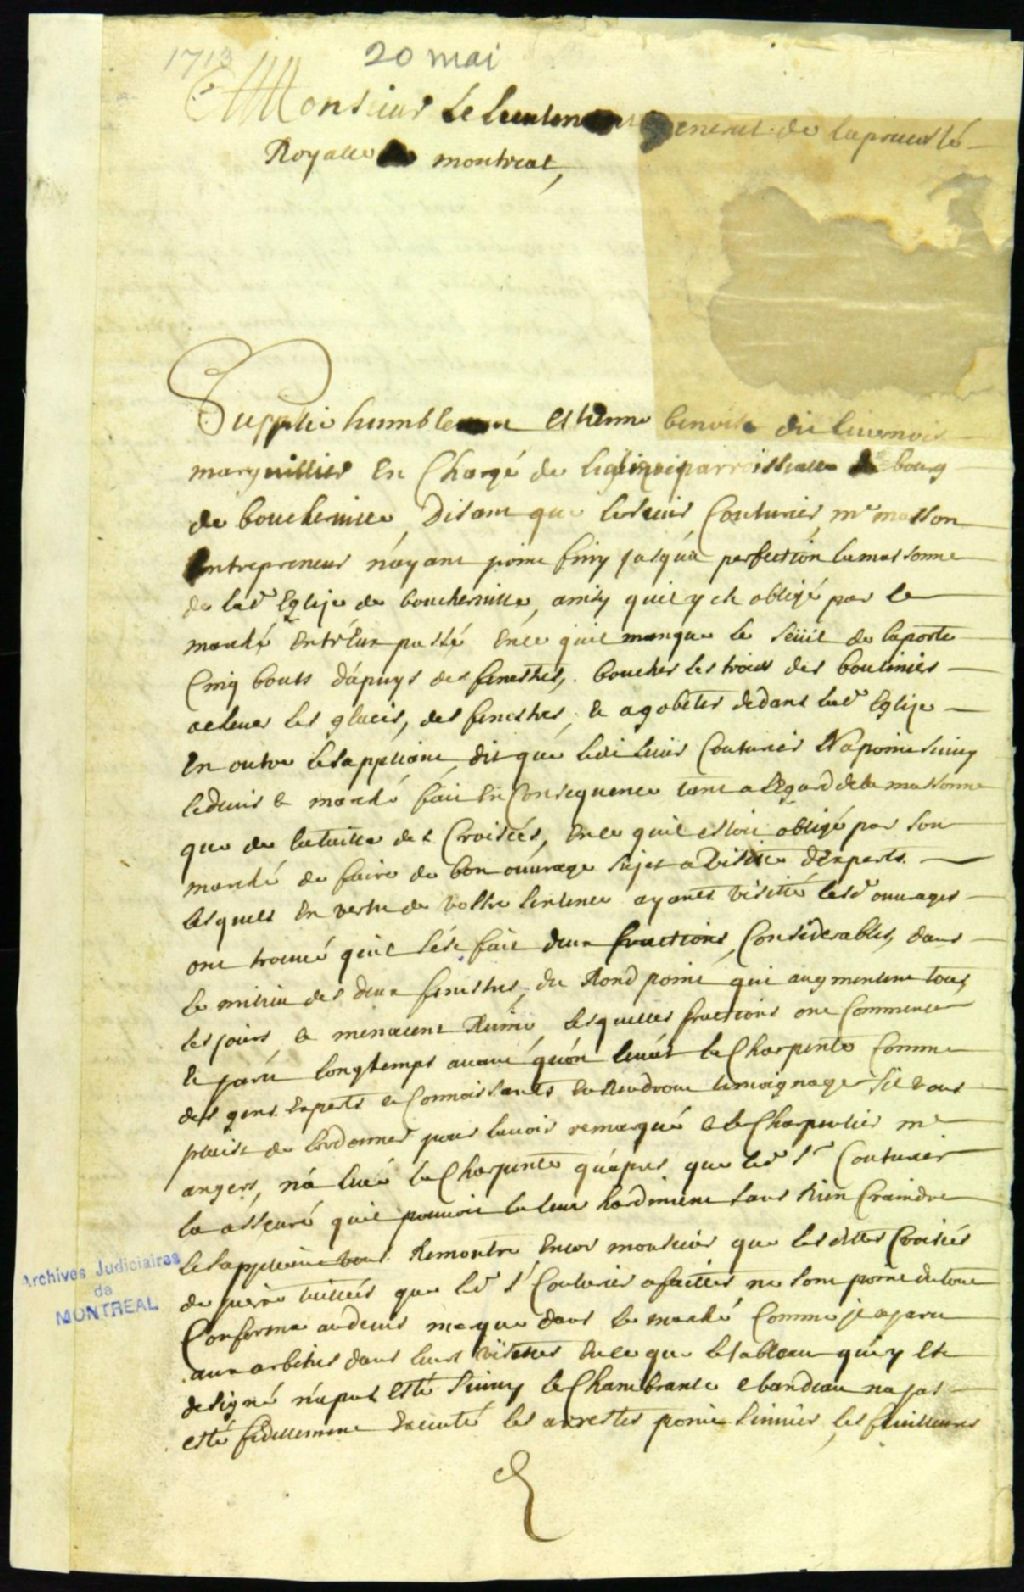 1713 20 mai
Monsieur Le lieutenant general de la prevosté
Royalle de montreal,
Supplie humblement estienne benoist dit livernois
marguillier En Charge de leglise parroissialle du bourg
de boucherville, Disant que le sieur Couturier, me masson
Entrepreneur n'ayant point finy jusqu'a perfection la massonne
de lad Eglise de boucherville, ainsy quil y est obligé par le
marché Entr'Eux passé En ce quil manque le seüil de la porte
Cinq bouts d'apuys des fenestres, boucher les trous des boulinies
achever les glacis, des fenestres, & agobeter dedans lad Eglise
En outre le suppliant, dit que ledit sieur Couturier N'a point suivy
le devis & marché fait En Consequence tant a l'Egard de la massonne
que de la taille des Croisées, En ce quil estoit obligé par son
marché de faire de bon ouvrage sujet a visitte d'Experts
lesquels En vertu de vostre sentence ayants visitté lesd ouvrages
ont trouvé quil s'est fait deux fractions, Considerables, dans
le milieu des deux fenestres, du Rond point qui augmentent tous
les jours & menacent Ruine, lesquelles fractions ont Commencé
& paru longtemps avant qu'on levat la Charpente Comme
des gens Experts & Connoissants En Rendront temoignage s'il vous
plaist de l'ordonner pour l'avoir remarqué & le Charpentier me
angers, n'a levé la Charpente qu'apres que led Sr Couturier
la asseuré quil pouvoit la lever hardiment sans Rien Craindre
le suppliant vous Remontre Encor monsieur que lesdittes Croisées
de pierre taillées que led Sr Couturier a faittes ne sont point du tout
Conforme au devis marqué dans le marché Comme il a paru
aux arbitres dans leurs visittes En ce que le tableau qui y est
designé n'a pas esté suivy le Chambranle & bandeau na pas
esté fidellement Executé les arrestes point suivies, les feuilleures
Archives Judiciaires
de
MONTREAL